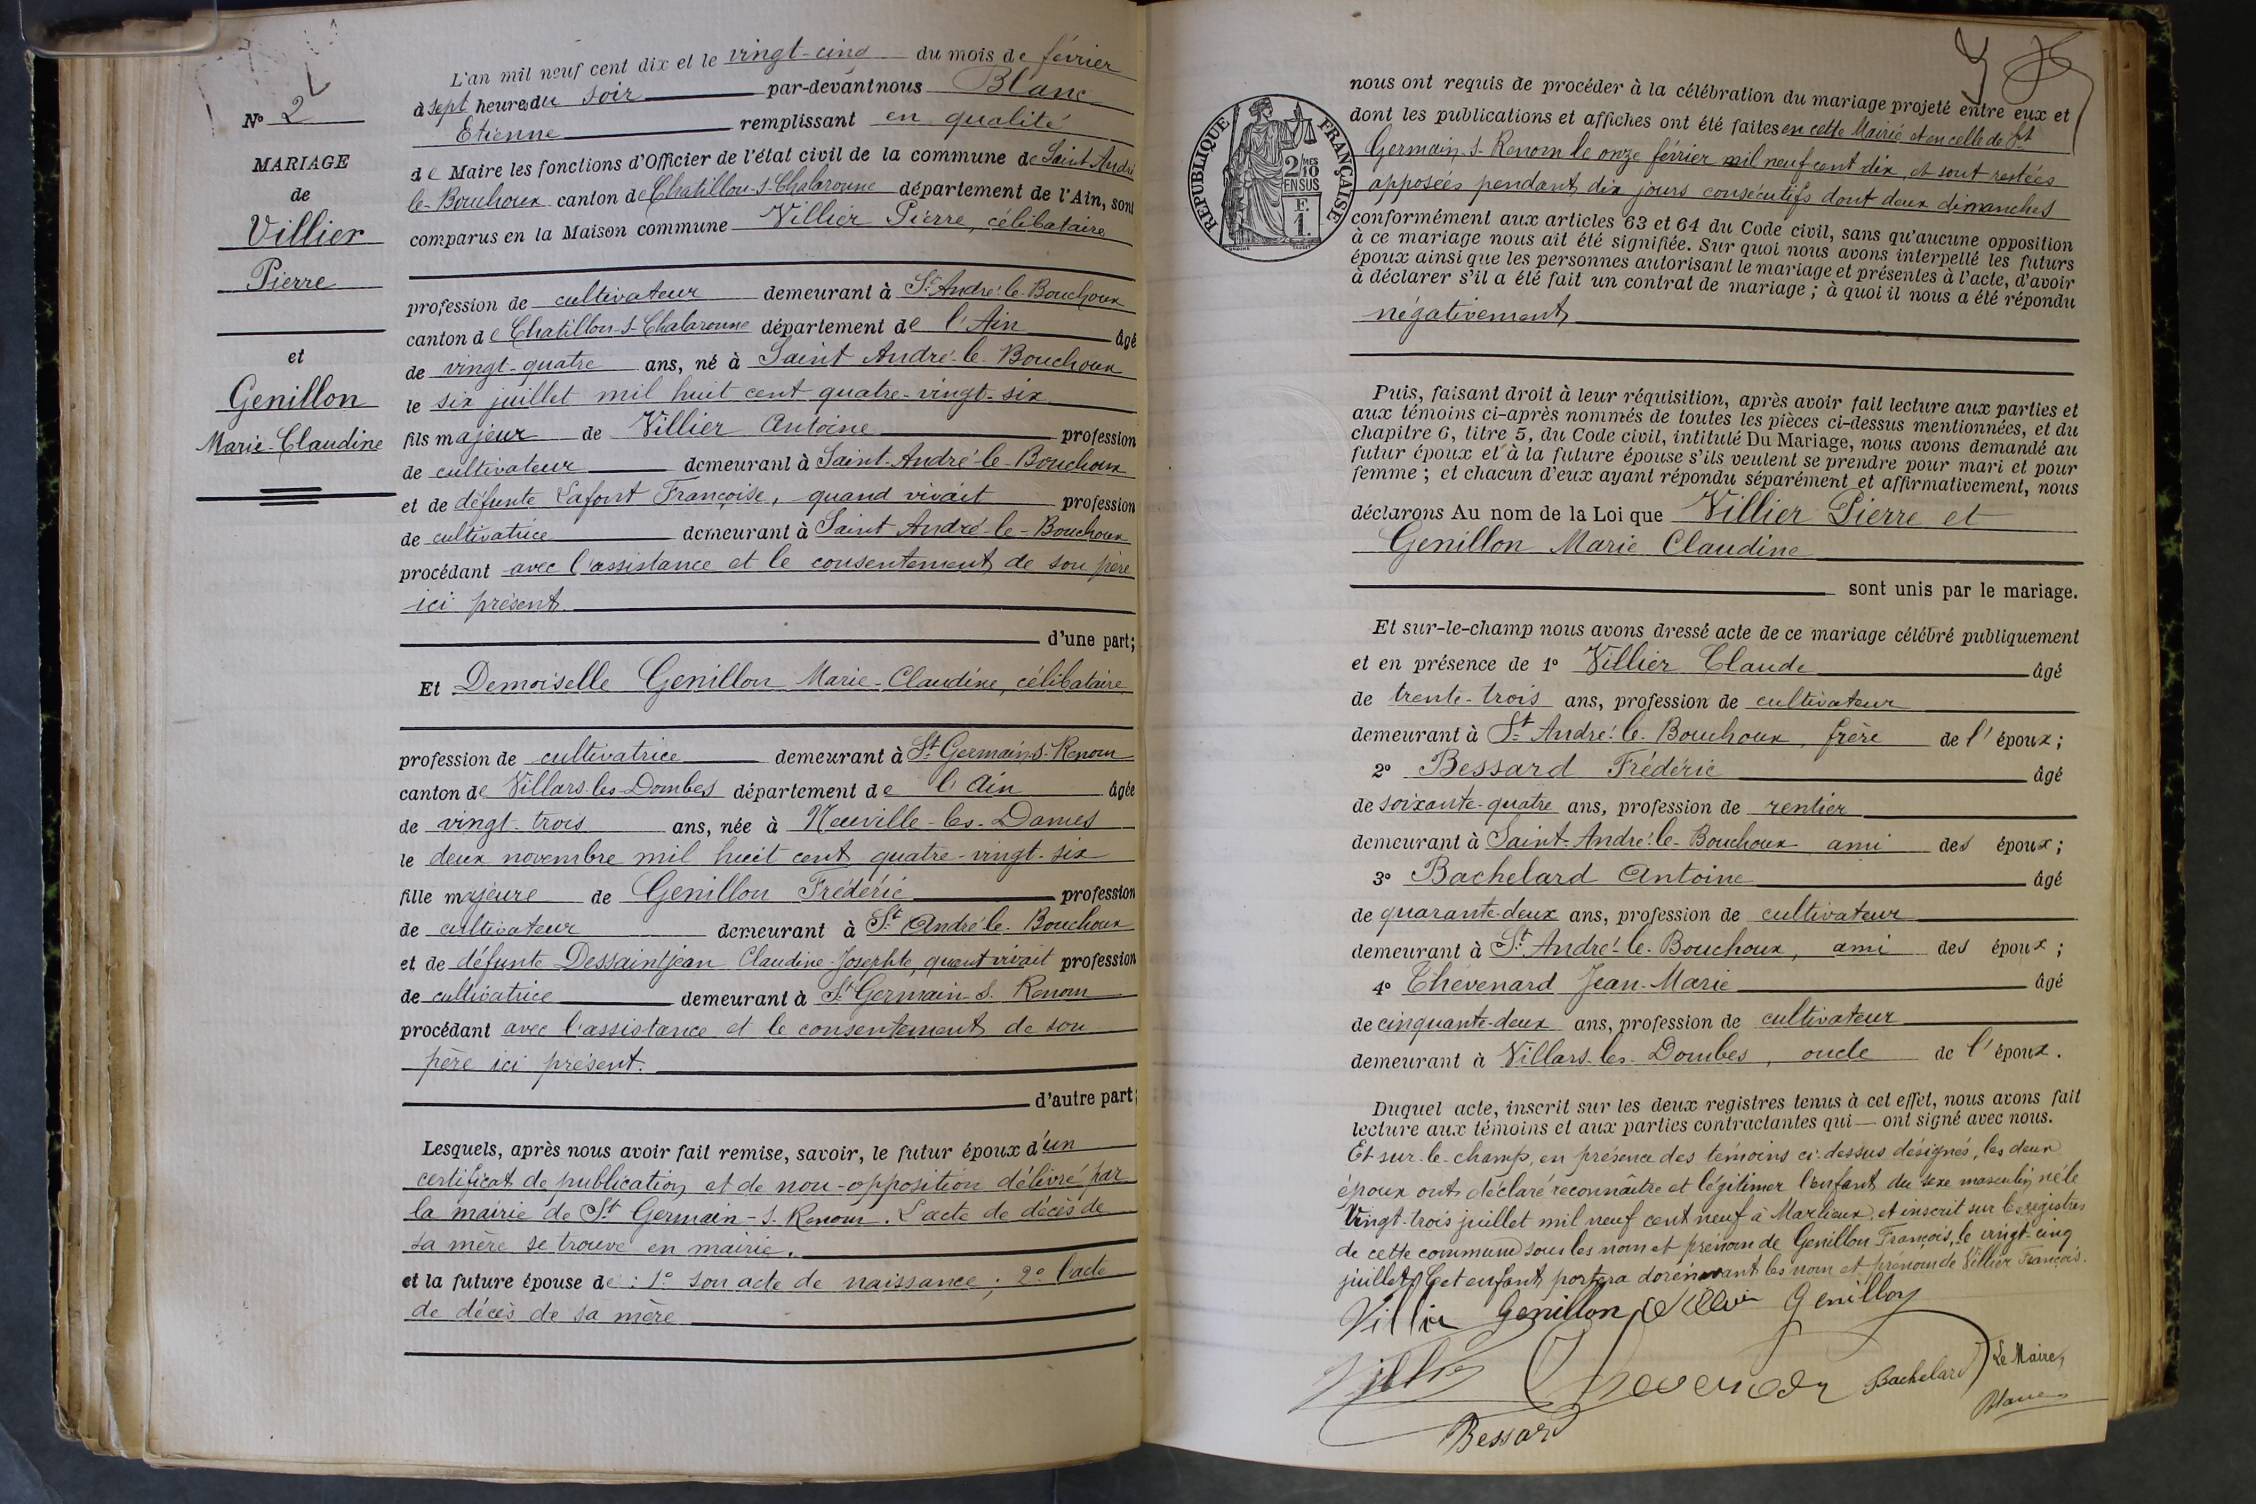 L'an mil neuf cent dix et le vingt-cinq du mois de février
à sept heures du soir par-devant nous Blanc
Etienne remplissant en qualité
de Maire les fonctions d'Officier de l'état civil de la commune de Saint André
le-Bouchoux canton de Chatillon-s-Chalaronne département de l'Ain, sont
comparus en la Maison commune Villier Pierre, célibataire
profession de cultivateur demeurant à St André-le-Bouchoux
canton de Chatillon-s-Chalaronne département de l'Ain âgé
de vingt-quatre ans, né à Saint André-le-Bouchoux
le six juillet mil huit cent quatre-vingt-six
fils majeur de Villier Antoine profession
de cultivateur demeurant à Saint-André-le-Bouchoux
et de défunte Lafont Françoise, quand vivait profession
de cultivatrice demeurant à Saint André-le-Bouchoux
procédant avec l'assistance et le consentement de son père
ici présent
d'une part;
Et Demoiselle Genillon Marie-Claudine, célibataire
profession de cultivatrice demeurant à St Germain-s-Renom
canton de Villars-les-Dombes département de l'Ain âgée
de vingt-trois ans, née à Neuville-les-Dames
le deux novembre mil huit cent quatre-vingt-six
fille majeure de Genillon Frédéric profession
de cultivateur demeurant à St André-le-Bouchoux
et de défunte Dessaintjean Claudine-Josephte, quant vivait profession
de cultivatrice demeurant à St Germain-s-Renom
procédant avec l'assistance et le consentement de son
père ici présent.
d'autre part;
Lesquels, après nous avoir fait remise, savoir, le futur époux d'un
certificat de publication et de non-opposition délivré par
la mairie de St Germain-s-Renom. L'acte de décès de
sa mère se trouve en mairie.
et la future épouse de : 1º son acte de naissance ; 2º l'acte
de décès de sa mère
Nº 2
MARIAGE
de
Villier
Pierre
et
Genillon
Marie-Claudine
nous ont requis de procéder à la célébration du mariage projeté entre eux et
dont les publications et affiches ont été faites en cette Mairie et en celle de St
Germain-s-Renom le onze février mil neuf cent dix, et sont restées
apposées pendant dix jours consécutifs dont deux dimanches
conformément aux articles 63 et 64 du Code civil, sans qu'aucune opposition
à ce mariage nous ait été signifiée. Sur quoi nous avons interpellé les futurs
époux ainsi que les personnes autorisant le mariage et présentes à l'acte, d'avoir
à déclarer s'il a été fait un contrat de mariage ; à quoi il nous a été répondu
négativement
REPUBLIQUE FRANÇAISE
2/10MES
EN SUS
F.
1.
Puis, faisant droit à leur réquisition, après avoir fait lecture aux parties et
aux témoins ci-après nommés de toutes les pièces ci-dessus mentionnées, et du
chapitre 6, titre 5, du Code civil, intitulé Du Mariage, nous avons demandé au
futur époux et à la future épouse s'ils veulent se prendre pour mari et pour
femme ; et chacun d'eux ayant répondu séparément et affirmativement, nous
déclarons Au nom de la Loi que Villier Pierre et
Genillon Marie Claudine
sont unis par le mariage.
Et sur-le-champ nous avons dressé acte de ce mariage célébré publiquement
et en présence de 1º Villier Claude âgé
de trente-trois ans, profession de cultivateur
demeurant à St André-le-Bouchoux, frère de l'époux ;
2º Bessard Frédéric âgé
de soixante-quatre ans, profession de rentier
demeurant à Saint-André-le-Bouchoux ami des époux ;
3º Bachelard Antoine âgé
de quarante-deux ans, profession de cultivateur
demeurant à St André-le-Bouchoux, ami des époux ;
4º Thévenard Jean-Marie âgé
de cinquante-deux ans, profession de cultivateur
demeurant à Villars-les-Dombes, oncle de l'époux.
Duquel acte, inscrit sur les deux registres tenus à cet effet, nous avons fait
lecture aux témoins et aux parties contractantes qui — ont signé avec nous.
Et sur-le-champ, en présence des témoins ci-dessus désignés, les deux
époux ont déclaré reconnaître et légitimer l'enfant du sexe masculin né le
vingt-trois juillet mil neuf cent neuf à Marlieux, et inscrit sur les registres
de cette commune sous les nom et prénom de Genillon François, le vingt-cinq
juillet. Cet enfant portera dorénavant les nom et prénom de Villier François.
Villier Genillon Villier Genillon
Villier Thevenard Bachelard Le Maire,
Bessard Blanc